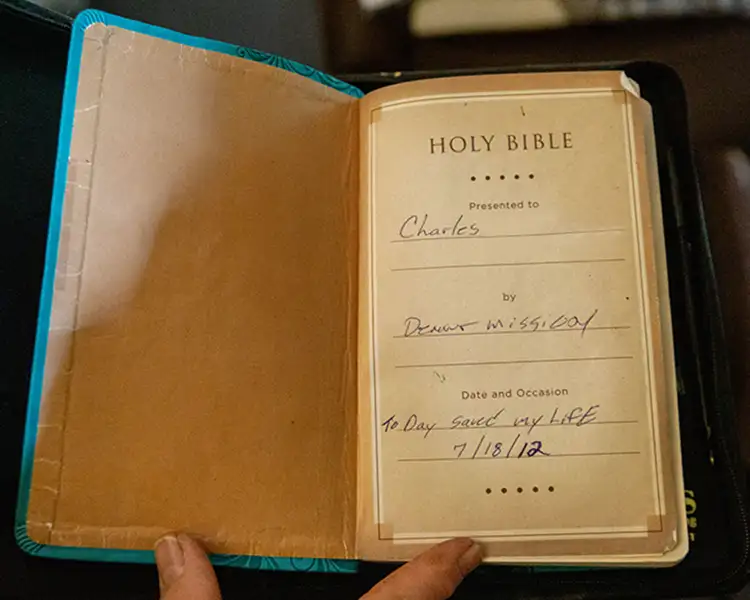 HOLY BIBLE
Presented to
Charles
by
Denver Mission
Date and Occasion
To Day saved my LiFE
7/18/12
S